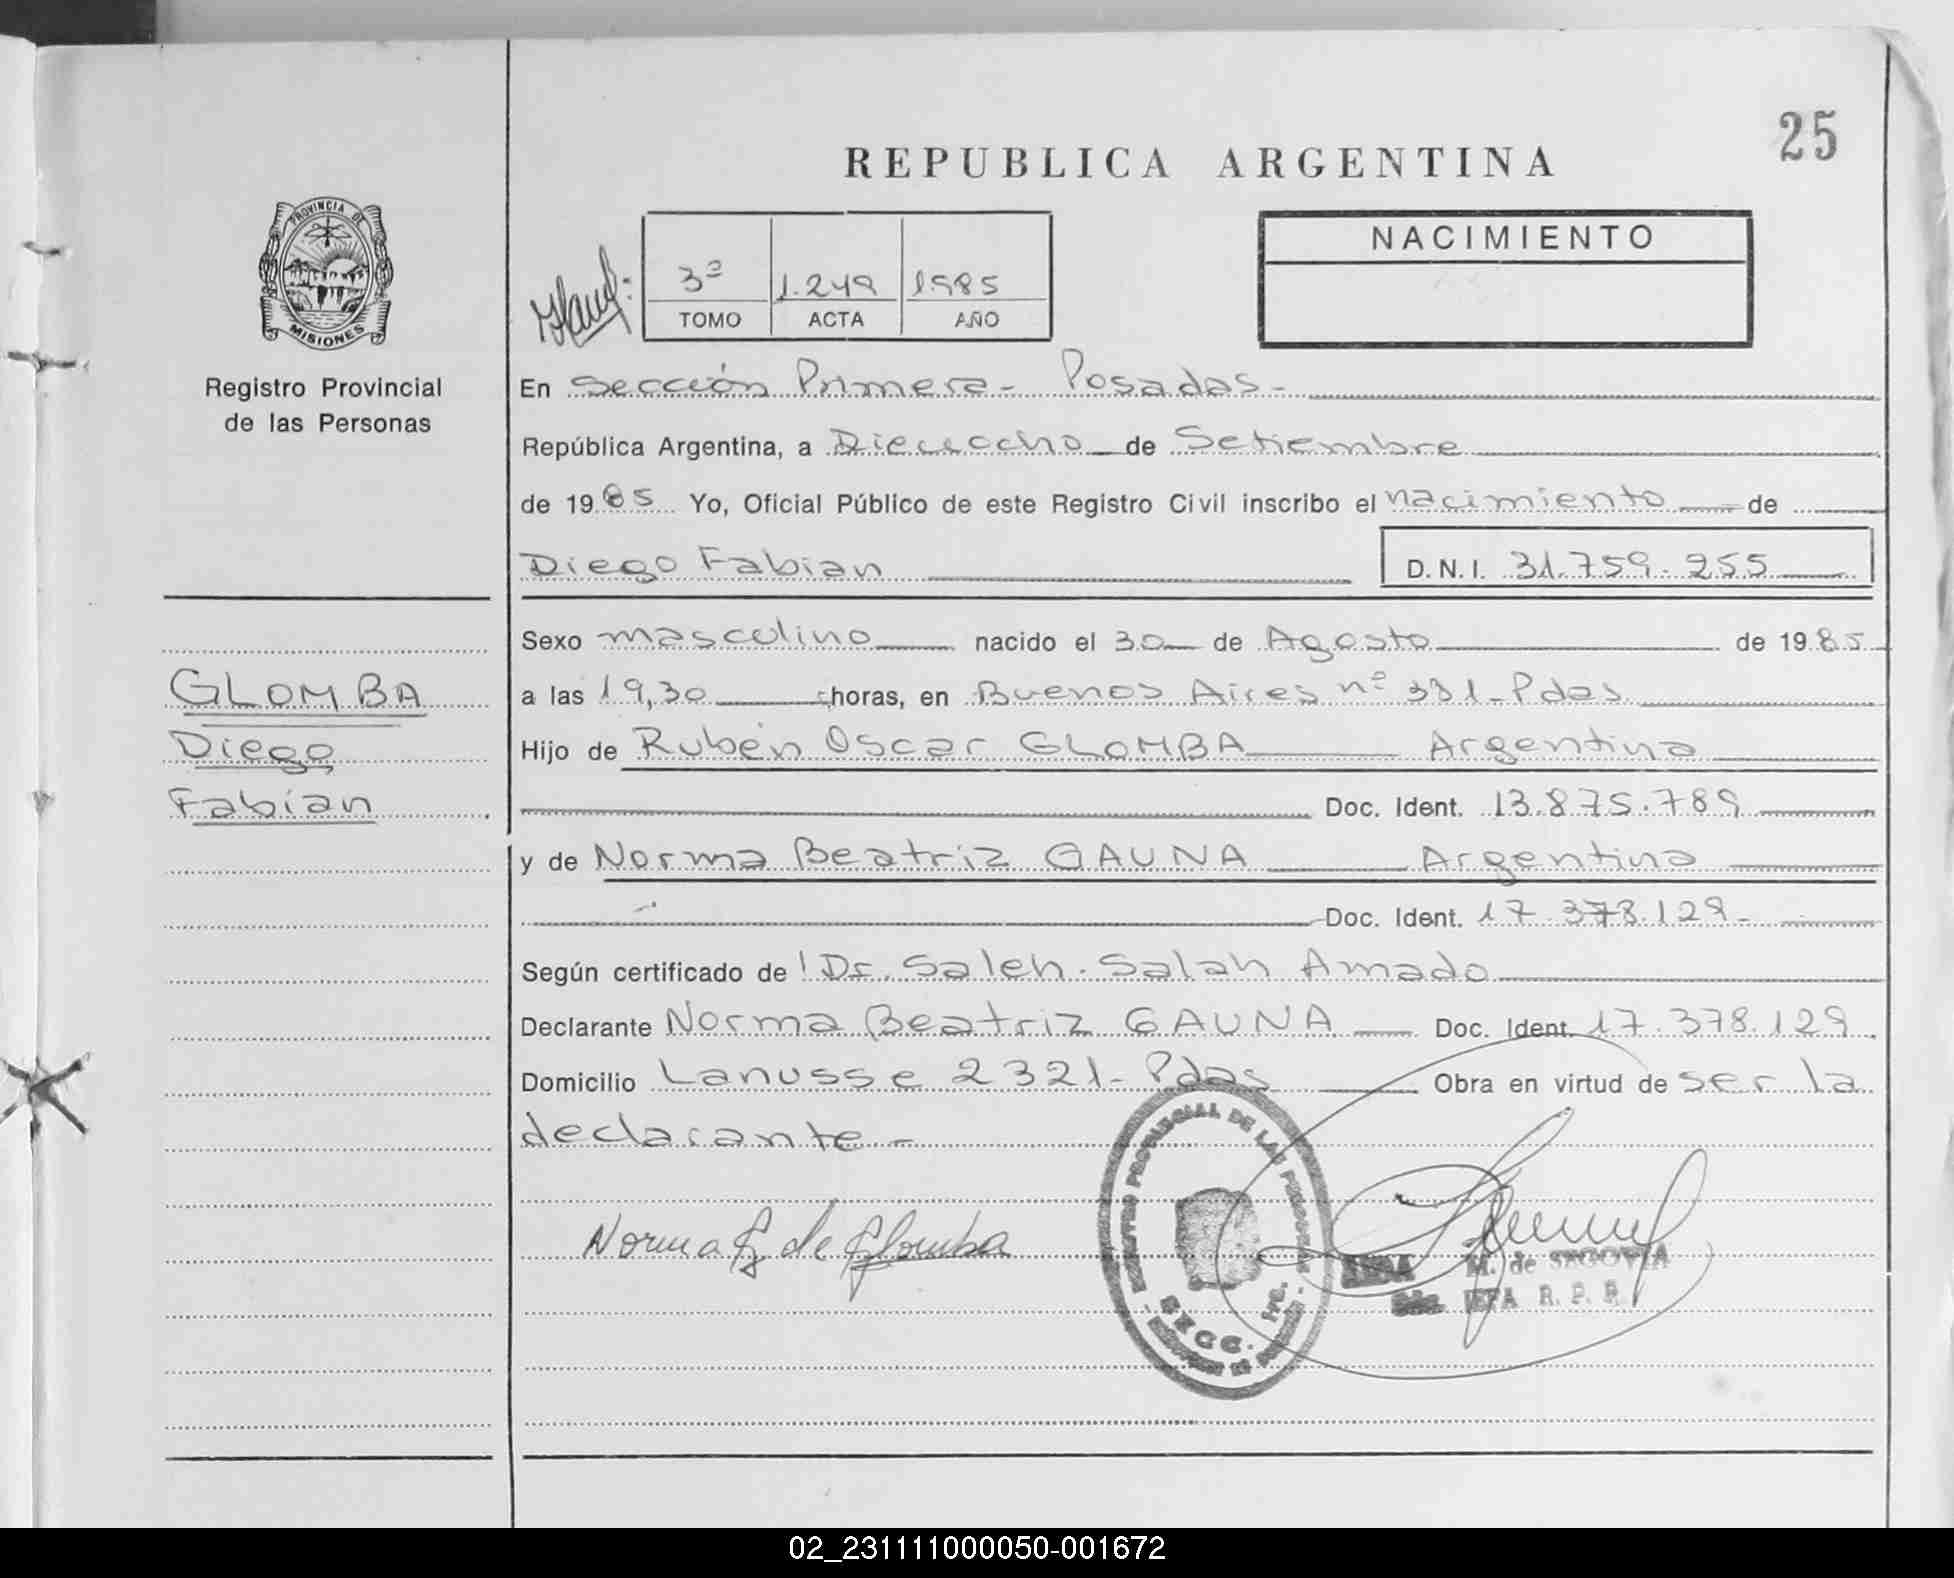 25
REPUBLICA ARGENTINA
PROVINCIA DE
MISIONES
Registro Provincial
de las Personas
3º 1.249 1985
TOMO ACTA AÑO
NACIMIENTO
En Sección Primera - Posadas -
República Argentina, a Dieciocho de Setiembre
de 1985 Yo, Oficial Público de este Registro Civil inscribo el nacimiento de
Diego Fabian D.N.I. 31.759.255
Sexo masculino nacido el 30 de Agosto de 1985
a las 19,30 horas, en Buenos Aires nº 331 - Pdas
Hijo de Rubén Oscar GLOMBA Argentina
Doc. Ident. 13.875.789
y de Norma Beatriz GAUNA Argentina
Doc. Ident. 17.378.129 -
Según certificado de Dr. Saleh. Salah Amado
Declarante Norma Beatriz GAUNA Doc. Ident. 17.378.129
Domicilio Lanusse 2321 - Pdas Obra en virtud de ser la
declarante -
GLOMBA
Diego
Fabian
Norma G de Glomba
REGISTRO PROVINCIAL DE LAS PERSONAS
SECC. 1ra.
M. de SEGOVIA
JEFA R. P. P.
02_231111000050-001672